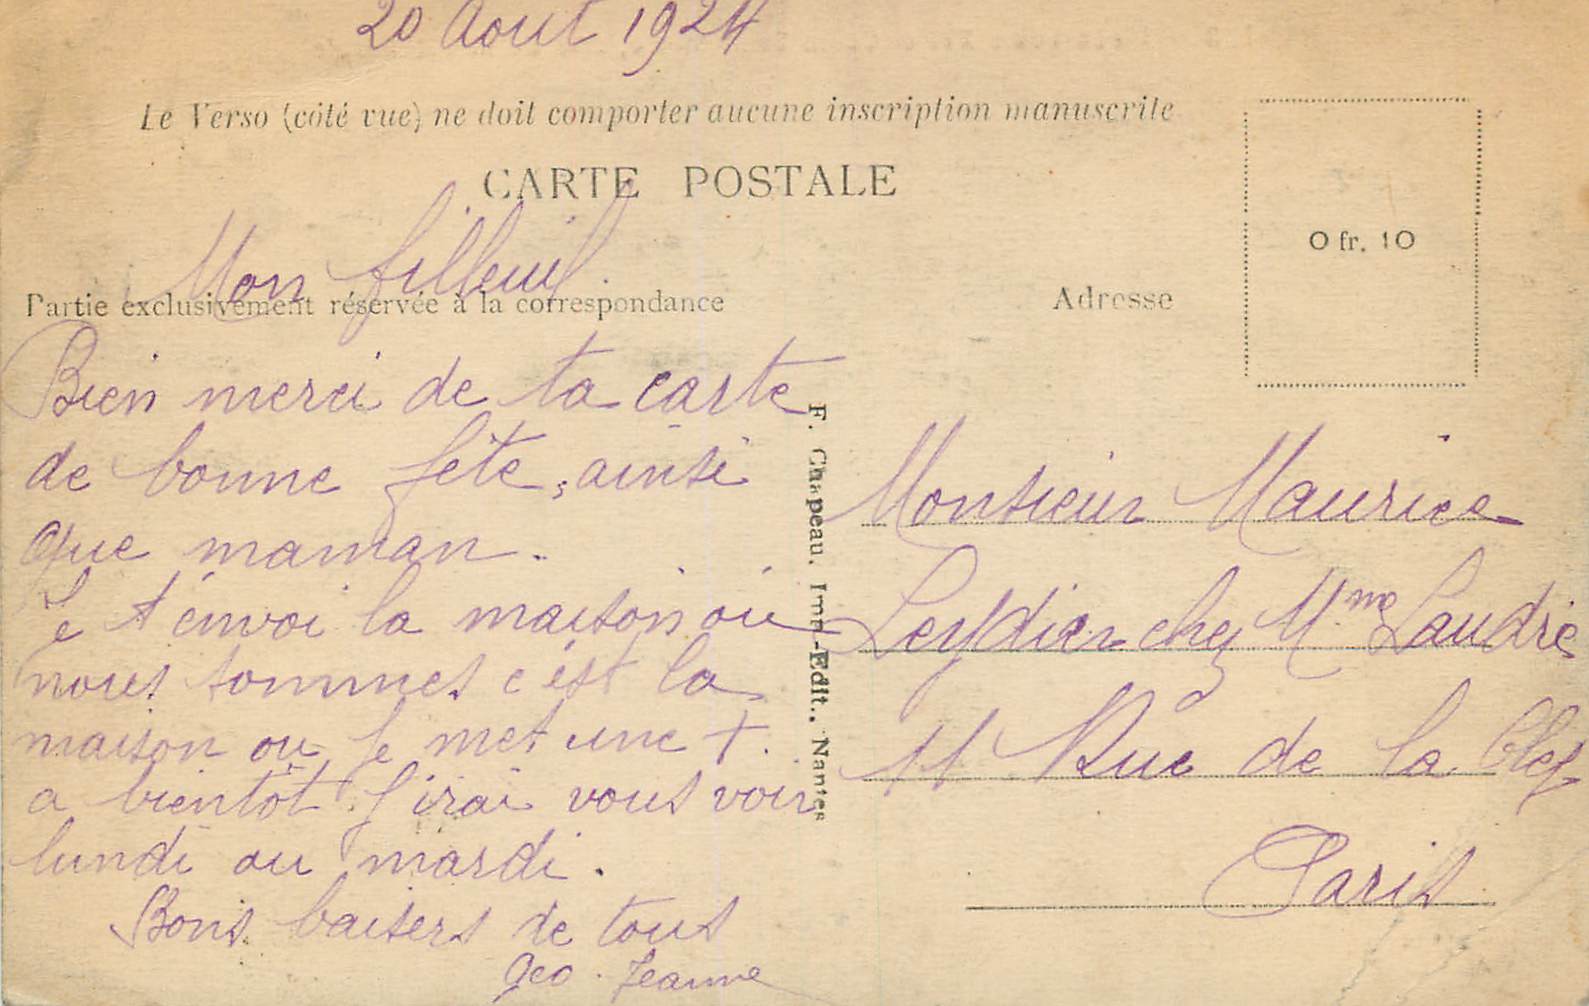 20 Aout 1924
Le Verso (côté vue) ne doit comporter aucune inscription manuscrite
CARTE POSTALE
0 fr. 10
Partie exclusivement réservée à la correspondance
Adresse
Mon filleuil.
Bien merci de ta carte
de bonne fête, ainsi
que maman.
Je t'envoi la maison où
nous sommes c'est la
maison ou je met une +.
a bientôt j'irai vous voir
lundi ou mardi.
Bons baisers de tous
Geo. Jeanne
F. Chapeau. Imp.-Edit., Nantes
Monsieur Maurice
Leydier chez Mme Laudré
11 Rue de la Clef
Paris